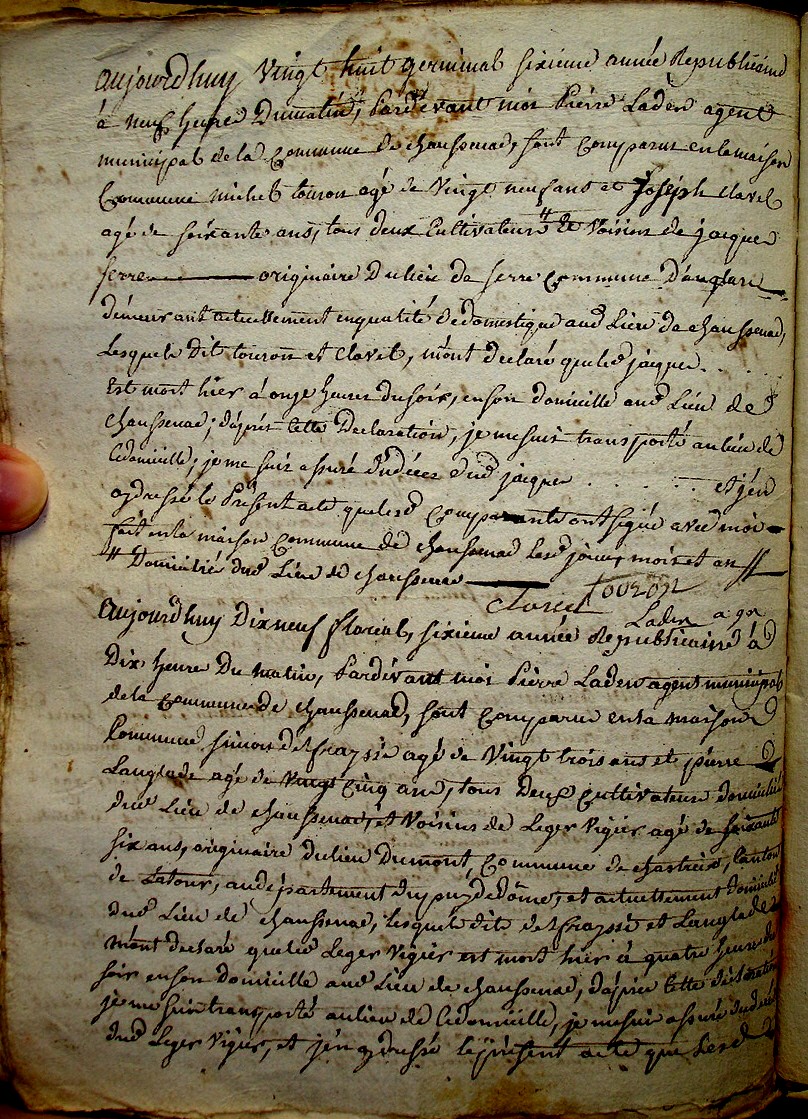 aujourdhuy vingt huit germinal sixieme année Republicaine
à neuf heure Dumatin, Pardevant moi Pierre Laden agent
municipal de la Commune de chaussenac, sont Comparus en la maison
Commune michel touron agé de Vingt neuf ans et Joseph Clavel
agé de soixante ans, tous deux Cultivateurs # & Voisins de jacques
serre originaire Du lieu de serre Commune D'anglars
démeurant actuellement en qualité de domestique aud Lieu de chaussenac,
Lesquels dit touron et Clavel, m'ont declaré que led jacques . . . . .
Est mort hier à onze heures du soir, en son domicille aud Lieu de
chaussenac; d'aprés Cette Declaration, je me suis transporté au lieu de
Cedomicille; je me suis assuré du décés dud jacques . . . . . . et j'en
ay dressé le Présent acte que les d Comparants ont signé avec moi
fait en la maison Commune de chaussenac les d jour, mois et an #
# Domicilié dud Lieu de chaussenac
Clavel Touron
Laden agt
aujourdhuy Dixneuf floréal, sixieme année Republicaine à
Dix heure Du matin, Pardevant moi Pierre Laden agent municipal
de la Commune de chaussenac, sont Comparus en la maison
Commune simon delfraysse agé de Vingt trois ans et pierre
Langlade agé de Vingt Cinq ans, tous Deux Cultivateurs domicilié
dud Lieu de chaussenac, et Voisins de Leger Vigier agé de soixante
six ans, originaire du lieu Dumont, Commune de chastreix, Canton
de Latour, au département du puy de dôme, et actuellement domicilié
dud Lieu de chaussenac, lesquels dits delfraysse et Langlade
m'ont declaré que led Leger Vigier est mort hier à quatre heure du
soir en son domicille aud Lieu de chaussenac, d'aprés Cette déclaration
je me suis transporté au lieu de Cedomicille, je me suis assuré du décés
dud Leger Vigier, et j'en ay dressé le présent acte que les d